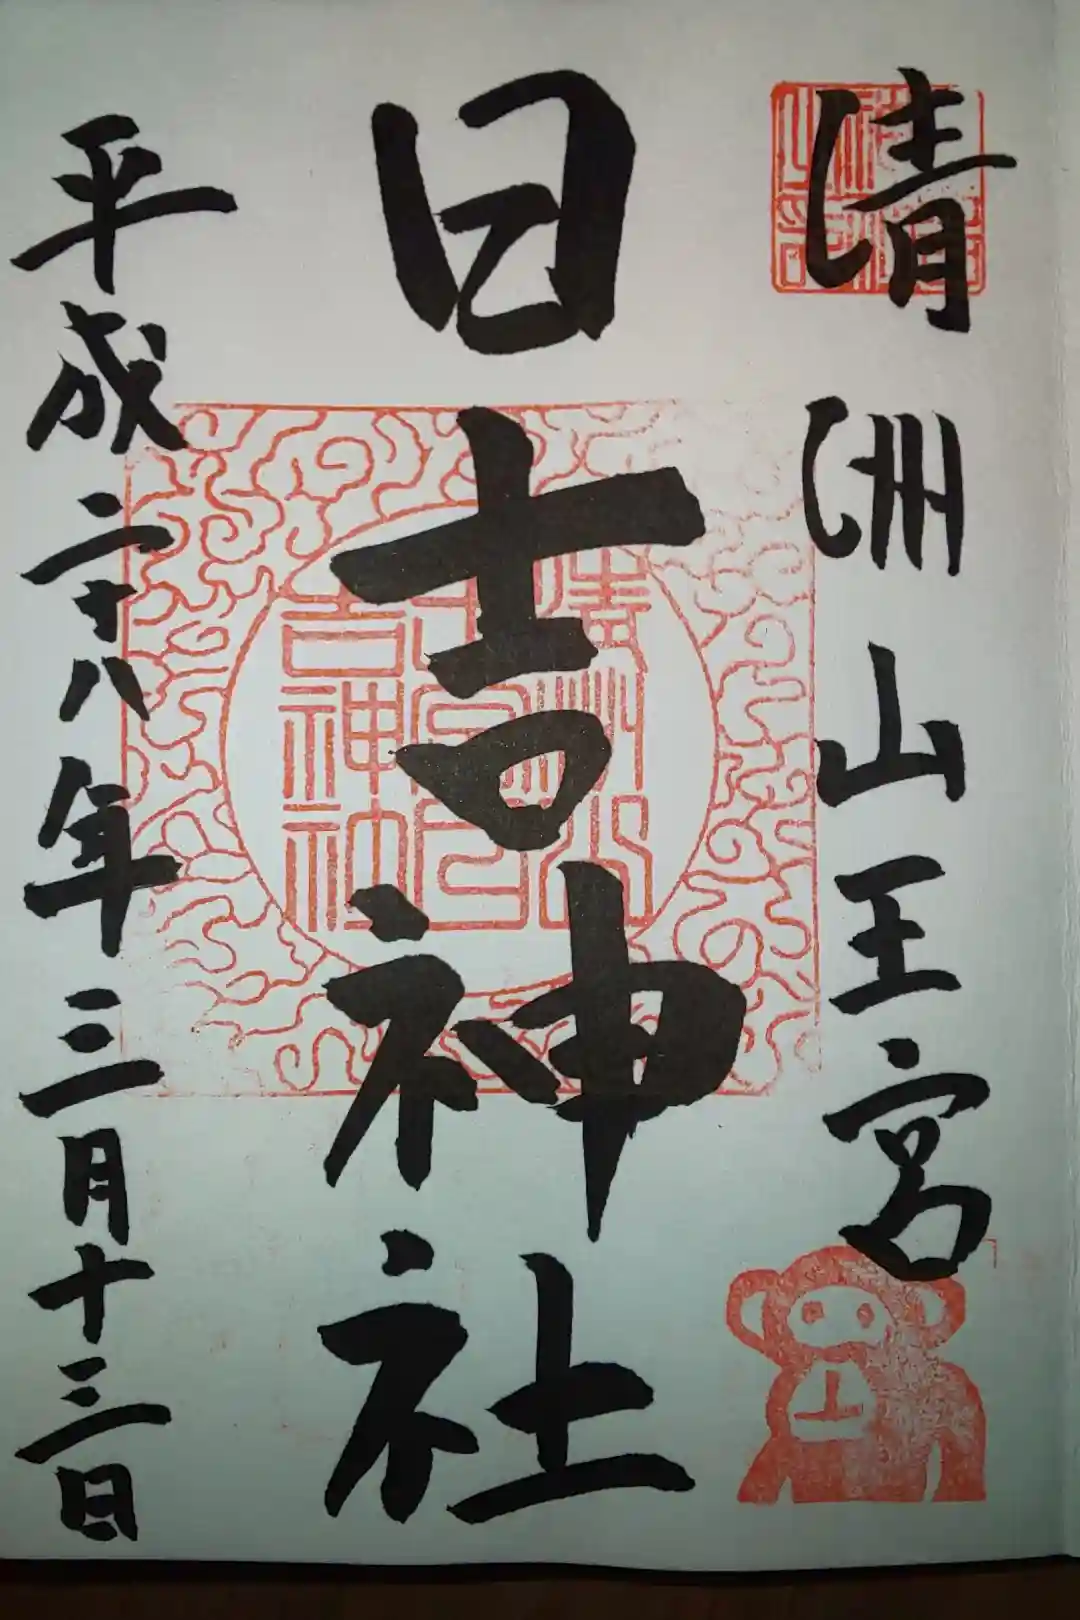 清洲山王宮
日吉神社
平成二十八年三月十三日
清洲山
王宮日
吉神社